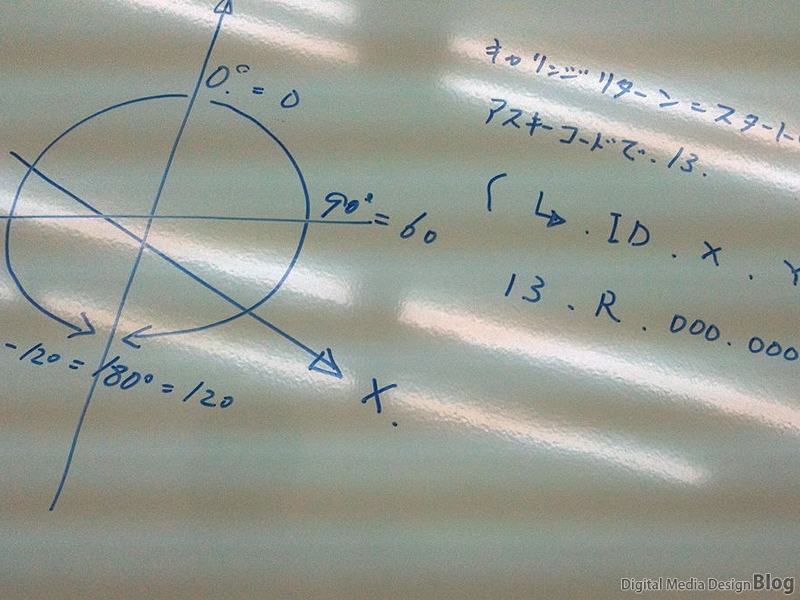 0° = 0
90° = 60
-120 = 180° = 120
X.
キャリッジリターン = スタート
アスキーコードで. 13.
「 ↳ . ID . X . Y
13 . R . 000. 000
Digital Media Design Blog